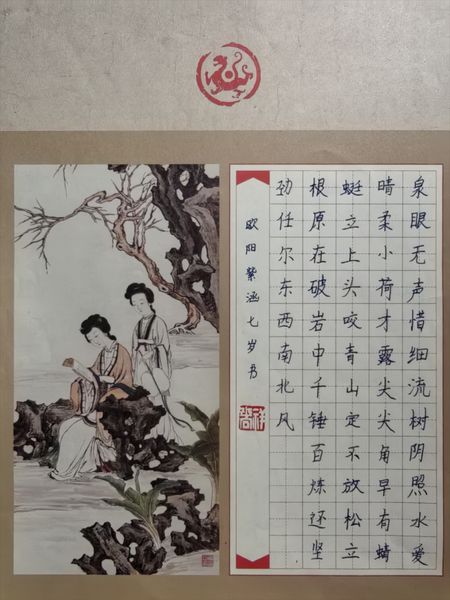 泉眼无声惜细流树阴照水爱
晴柔小荷才露尖尖角早有蜻
蜓立上头咬青山定不放松立
根原在破岩中千锤百炼还坚
劲任尔东西南北风
欧阳紫涵七岁书